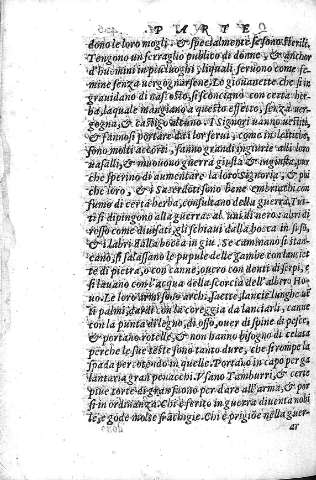 PARTE
dono le loro mogli, & specialmente se sono sterili.
Tengono un serraglio publico di donne, & anchor
d'huomini in piu luoghi, li quali seruono come fe-
mine senza uergognarsene. Le giouanette che si in-
grauidano di nascosto, si sconciano con certa her-
ba, laquale mangiano a questo effetto, senza uer-
gogna, & castigo alcuno. I Signori uanno uestiti,
& fannosi portare da i lor serui, come in lettiche,
sono molti accorti, fanno grandi ingiurie alli loro
uasalli, & muouono guerra giusta & ingiusta, pur
che sperino di aumentare la loro Signoria, & piu
che loro, & i Sacerdoti sono bene embriachi con
fumo di certa herba, consultano della guerra. Tut-
ti si dipingono alla guerra: al uni di nero: altri di
rosso come diuisati, gli schiaui dalla bocca in suso,
& i labri dalla bocca in giu. Se caminano si stan-
cano, si salassano le pupule delle gambe con lancet-
te di pietra, o con canne, ouero con denti di serpi, e
si lauano con l'acqua della scorcia dell'albero Ho-
uo. Le loro armi sono archi, saette, lancie lunghe ue
ti palmi, dardi con la coreggia da lanciarli, canne
con la punta di legno, di osso, ouer di spine di pesce,
& portano rotelle, & non hanno bisogno di celata
perche le sue teste sono tanto dure, che si rompe la
spada percotendo in quelle. Portano in capo per ga
lantaria gran penacchi. Vsano Tamburri, & certe
piue torte di gran suono per dare all'arma, & por
si in ordinanza. Chi è ferito in guerra diuenta nobi
le, e gode molte franchigie. Chi è prigiõe nella guer-
ar